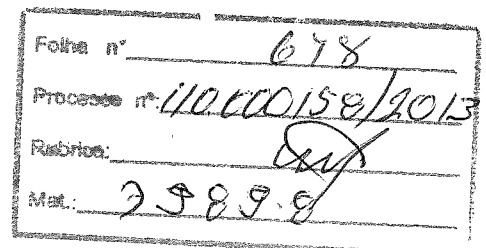 Folha nº 678
Processo nº 110.000158/2013
Rubrica:
Mat.: 79898